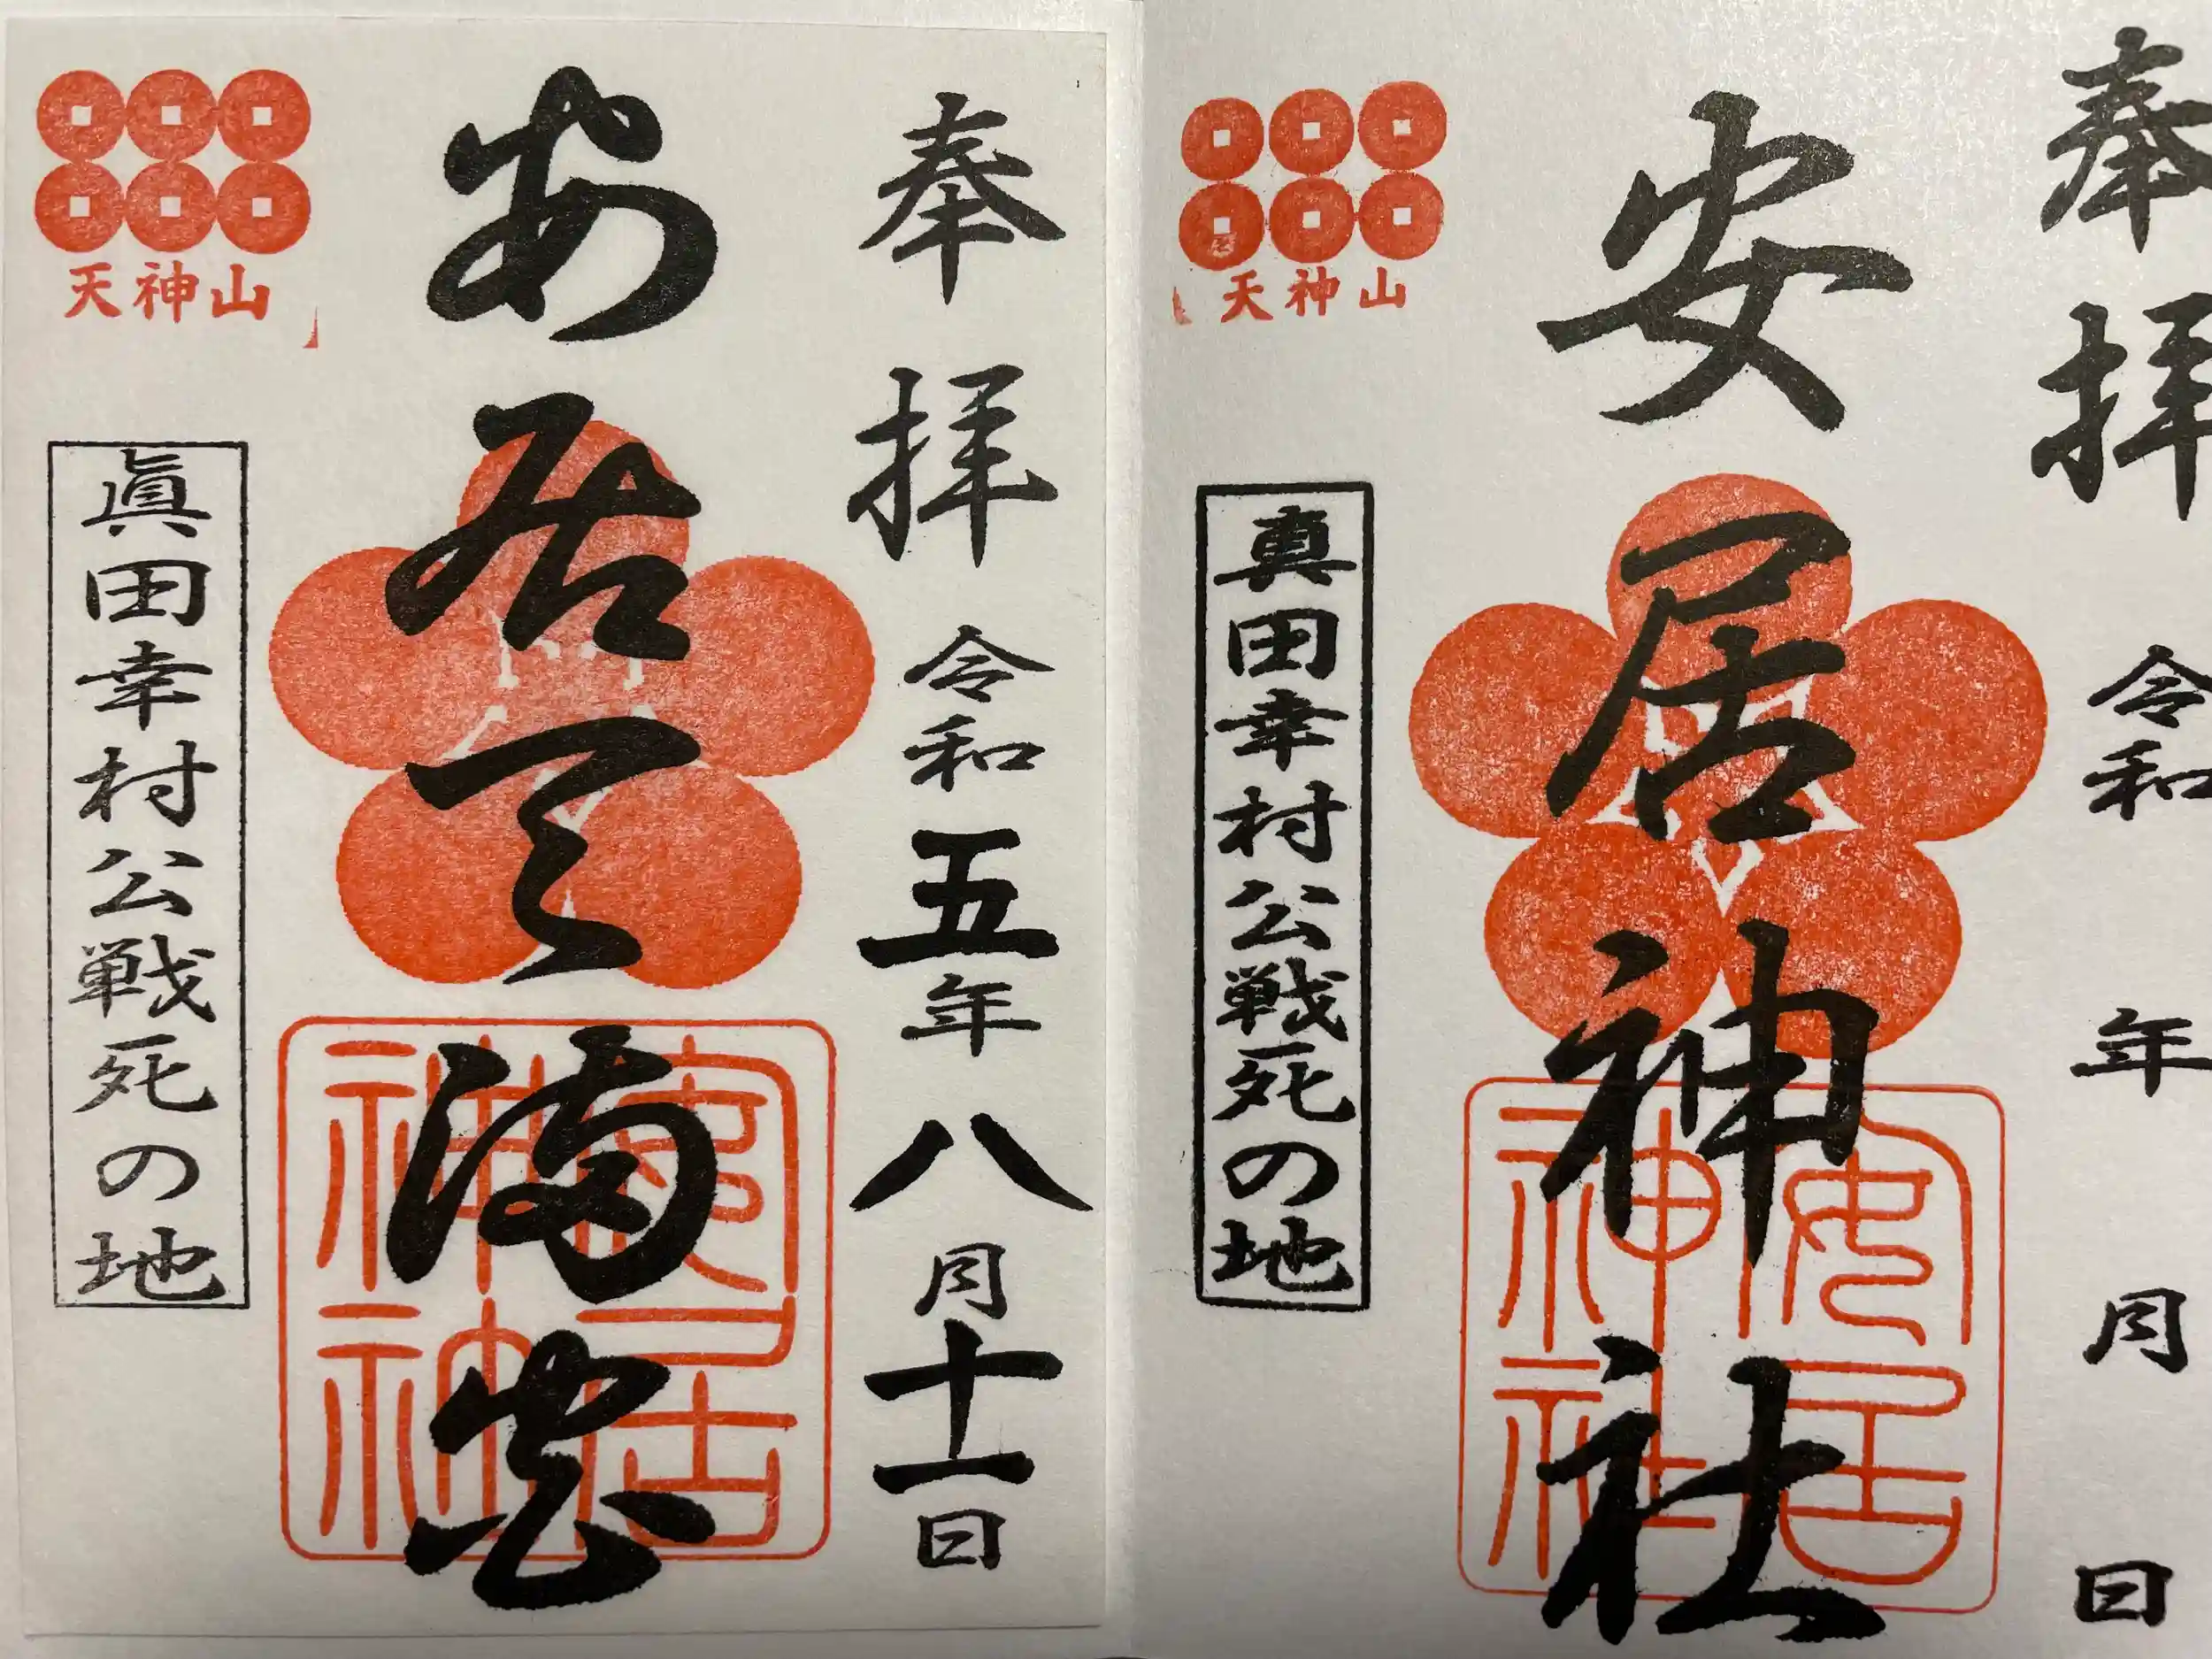 奉拝 令和 年 月 日
安居神社
安居
神社
天神山
真田幸村公戦死の地
奉拝 令和五年八月十一日
安居天満宮
安居
神社
天神山
眞田幸村公戦死の地